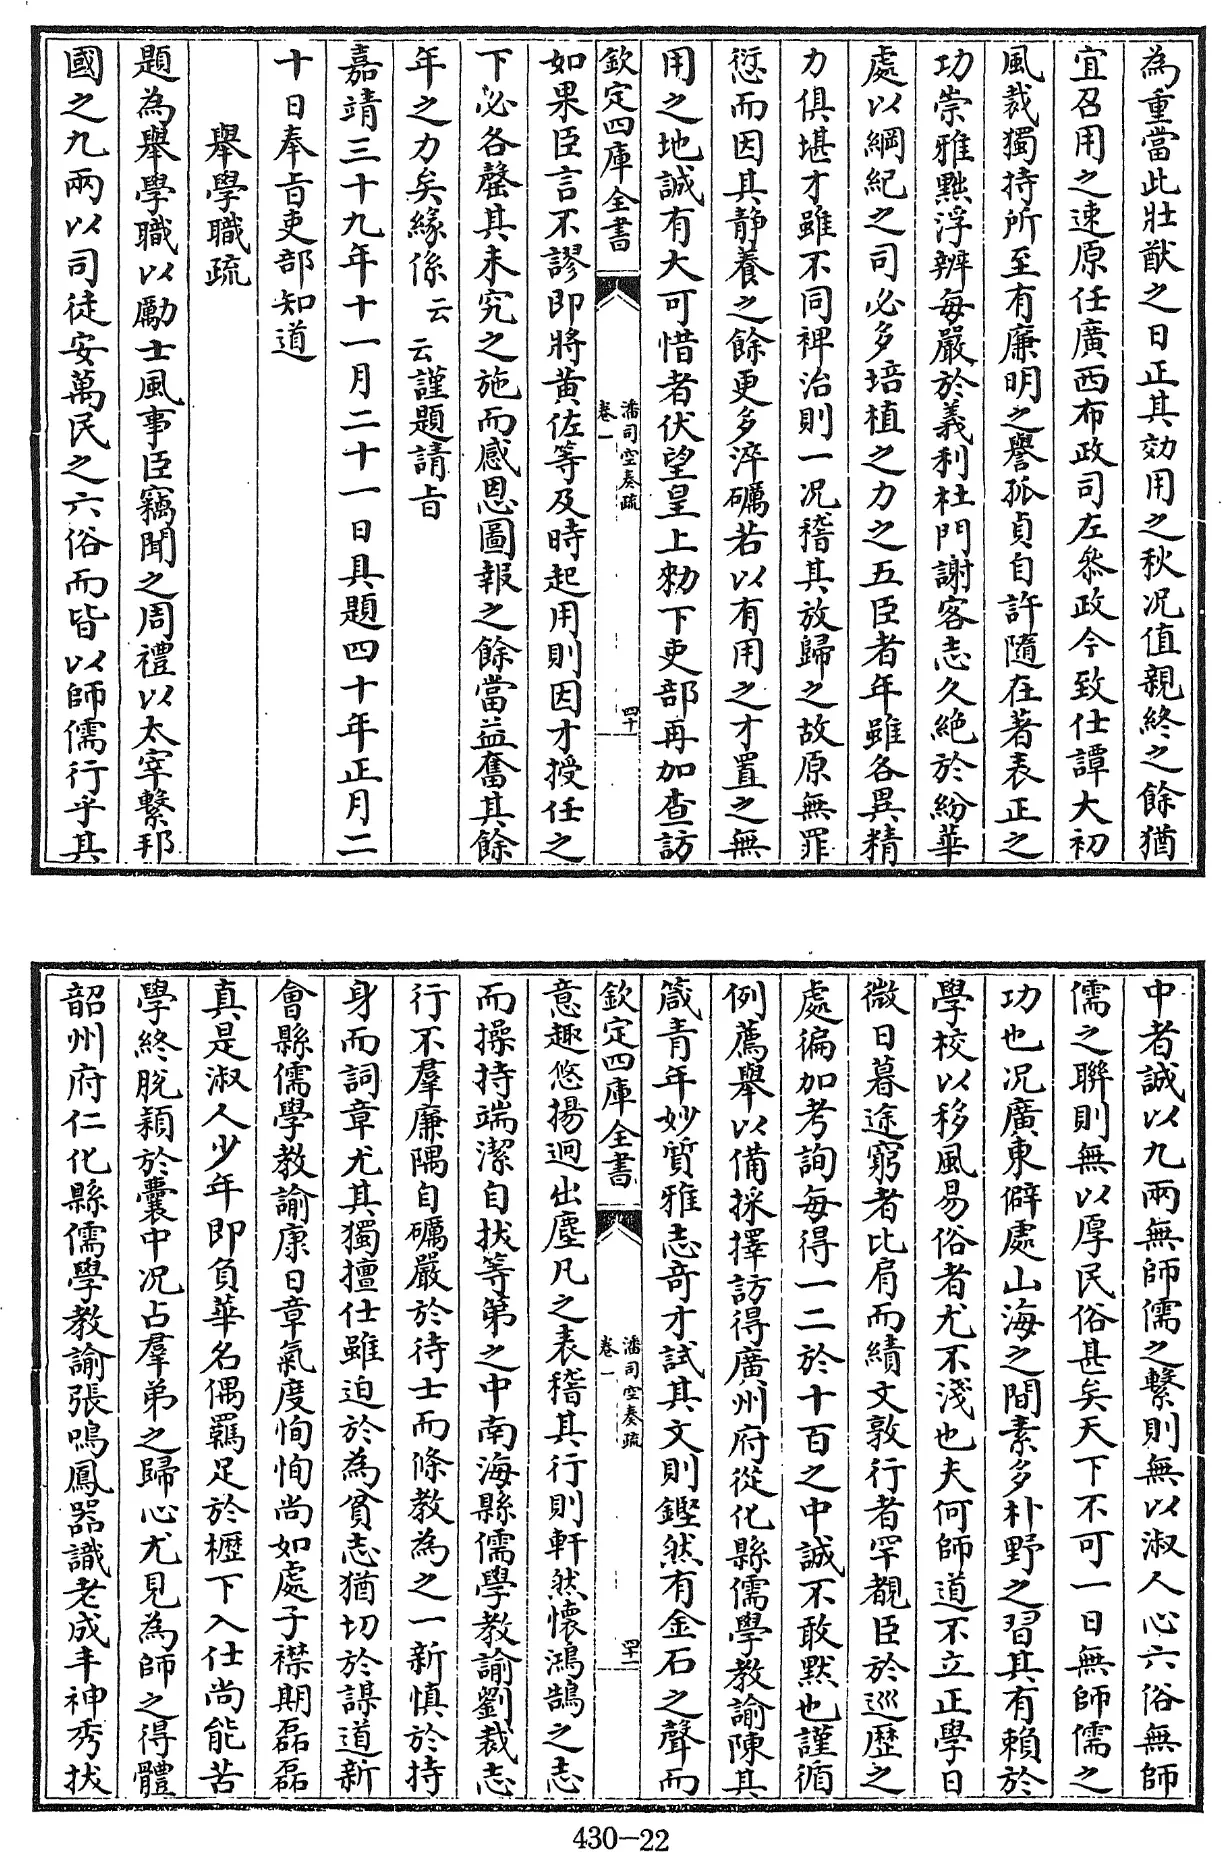 為重當此壯猷之日正其効用之秋况值親終之餘猶
宜召用之速原任廣西布政司左叅政今致仕譚大初
風裁獨持所至有廉明之譽孤貞自許隨在著表正之
功崇雅黜浮辨每嚴於義利杜門謝客志久絶於紛華
處以綱紀之司必多培植之力之五臣者年雖各異精
力俱堪才雖不同裨治則一况稽其放歸之故原無罪
愆而因其静養之餘更多淬礪若以有用之才置之無
用之地誠有大可惜者伏望皇上勑下吏部再加查訪
欽定四庫全書
潘司空奏疏
卷一
四十
如果臣言不謬即將黄佐等及時起用則因才授任之
下必各罄其未究之施而感恩圖報之餘當益奮其餘
年之力矣緣係云云謹題請㫖
嘉靖三十九年十一月二十一日具題四十年正月二
十日奉㫖吏部知道
舉學職疏
題為舉學職以勵士風事臣竊聞之周禮以太宰繫邦
國之九兩以司徒安萬民之六俗而皆以師儒行乎其
中者誠以九兩無師儒之繫則無以淑人心六俗無師
儒之聯則無以厚民俗甚矣天下不可一日無師儒之
功也况廣東僻處山海之間素多朴野之習其有賴於
學校以移風易俗者尤不淺也夫何師道不立正學日
微日暮途窮者比肩而績文敦行者罕覩臣於巡歴之
處徧加考詢每得一二於十百之中誠不敢默也謹循
例薦舉以備採擇訪得廣州府從化縣儒學教諭陳其
箴青年妙質雅志竒才試其文則鏗然有金石之聲而
欽定四庫全書
潘司空奏疏
卷一
四十一
意趣悠揚迥出塵凡之表稽其行則軒然懷鴻鵠之志
而操持端潔自拔等第之中南海縣儒學教諭劉裁志
行不羣廉隅自礪嚴於待士而條教為之一新慎於持
身而詞章尤其獨擅仕雖迫於為貧志猶切於謀道新
會縣儒學教諭康日章氣度恂恂尚如處子襟期磊磊
真是淑人少年即負華名偶羈足於櫪下入仕尚能苦
學終脫穎於囊中况占羣弟之歸心尤見為師之得體
韶州府仁化縣儒學教諭張鳴鳳器識老成丰神秀拔
430-22